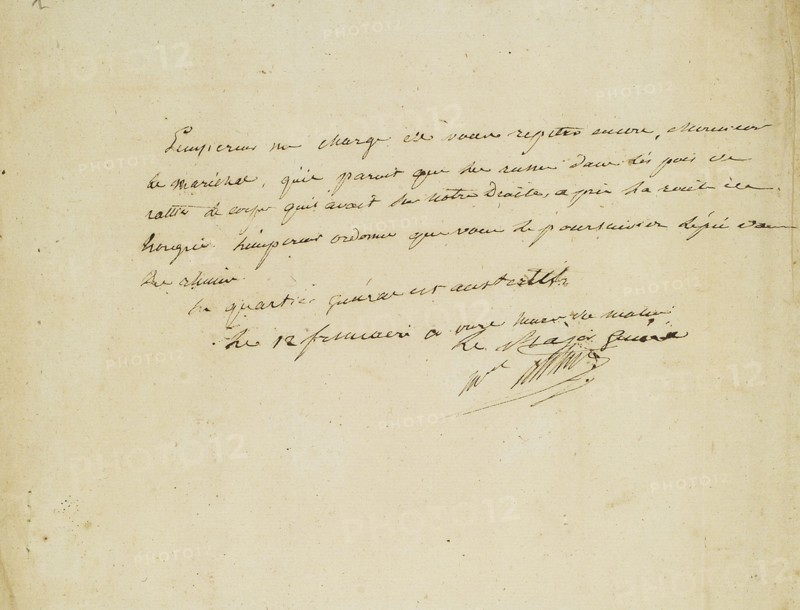 L'empereur me charge de vous repeter encore, Monsieur
le marechal, qu'il paroit que les russes dans les
de corps qu'il avait sur notre Droite, a pris la route de
hongrie l'empereur ordonne que vous le poursuiviez l'épée dans
les reins.
Le quartier général est austerlitz
Le 12 frimaire a onze heures du matin
Le Major général
Mal